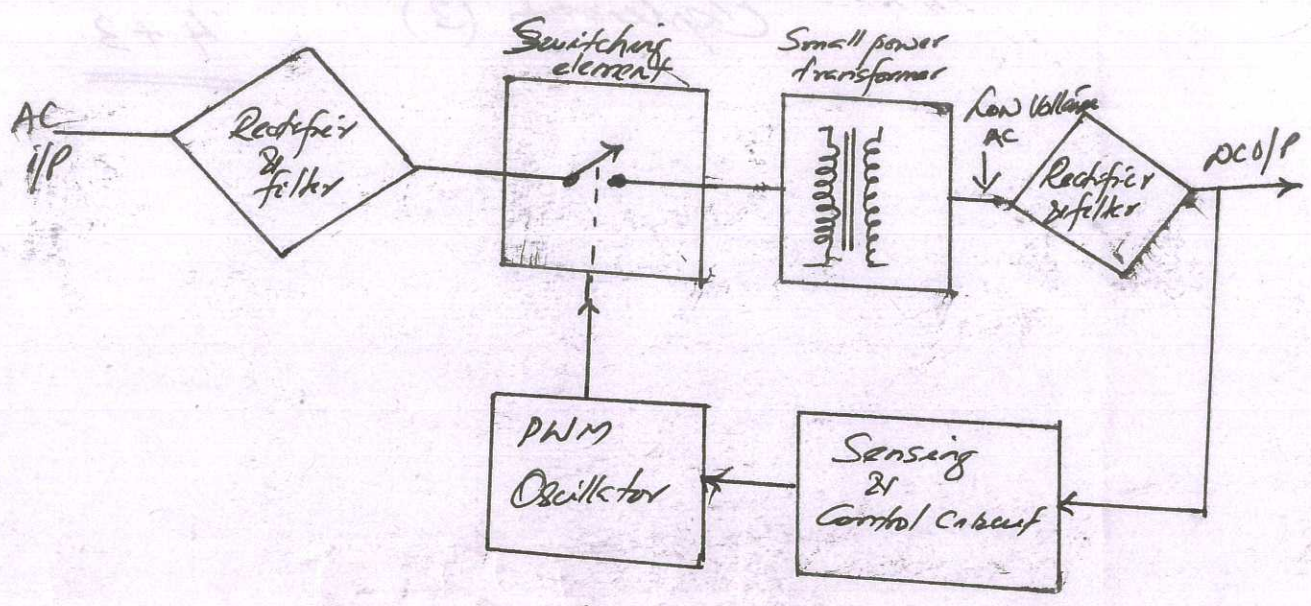 AC
i/P
Rectifier
&
filter
Switching
element
Small power
transformer
Low Voltage
AC
Rectifier
& filter
DC O/P
PWM
Oscillator
Sensing
&
Control Circuit